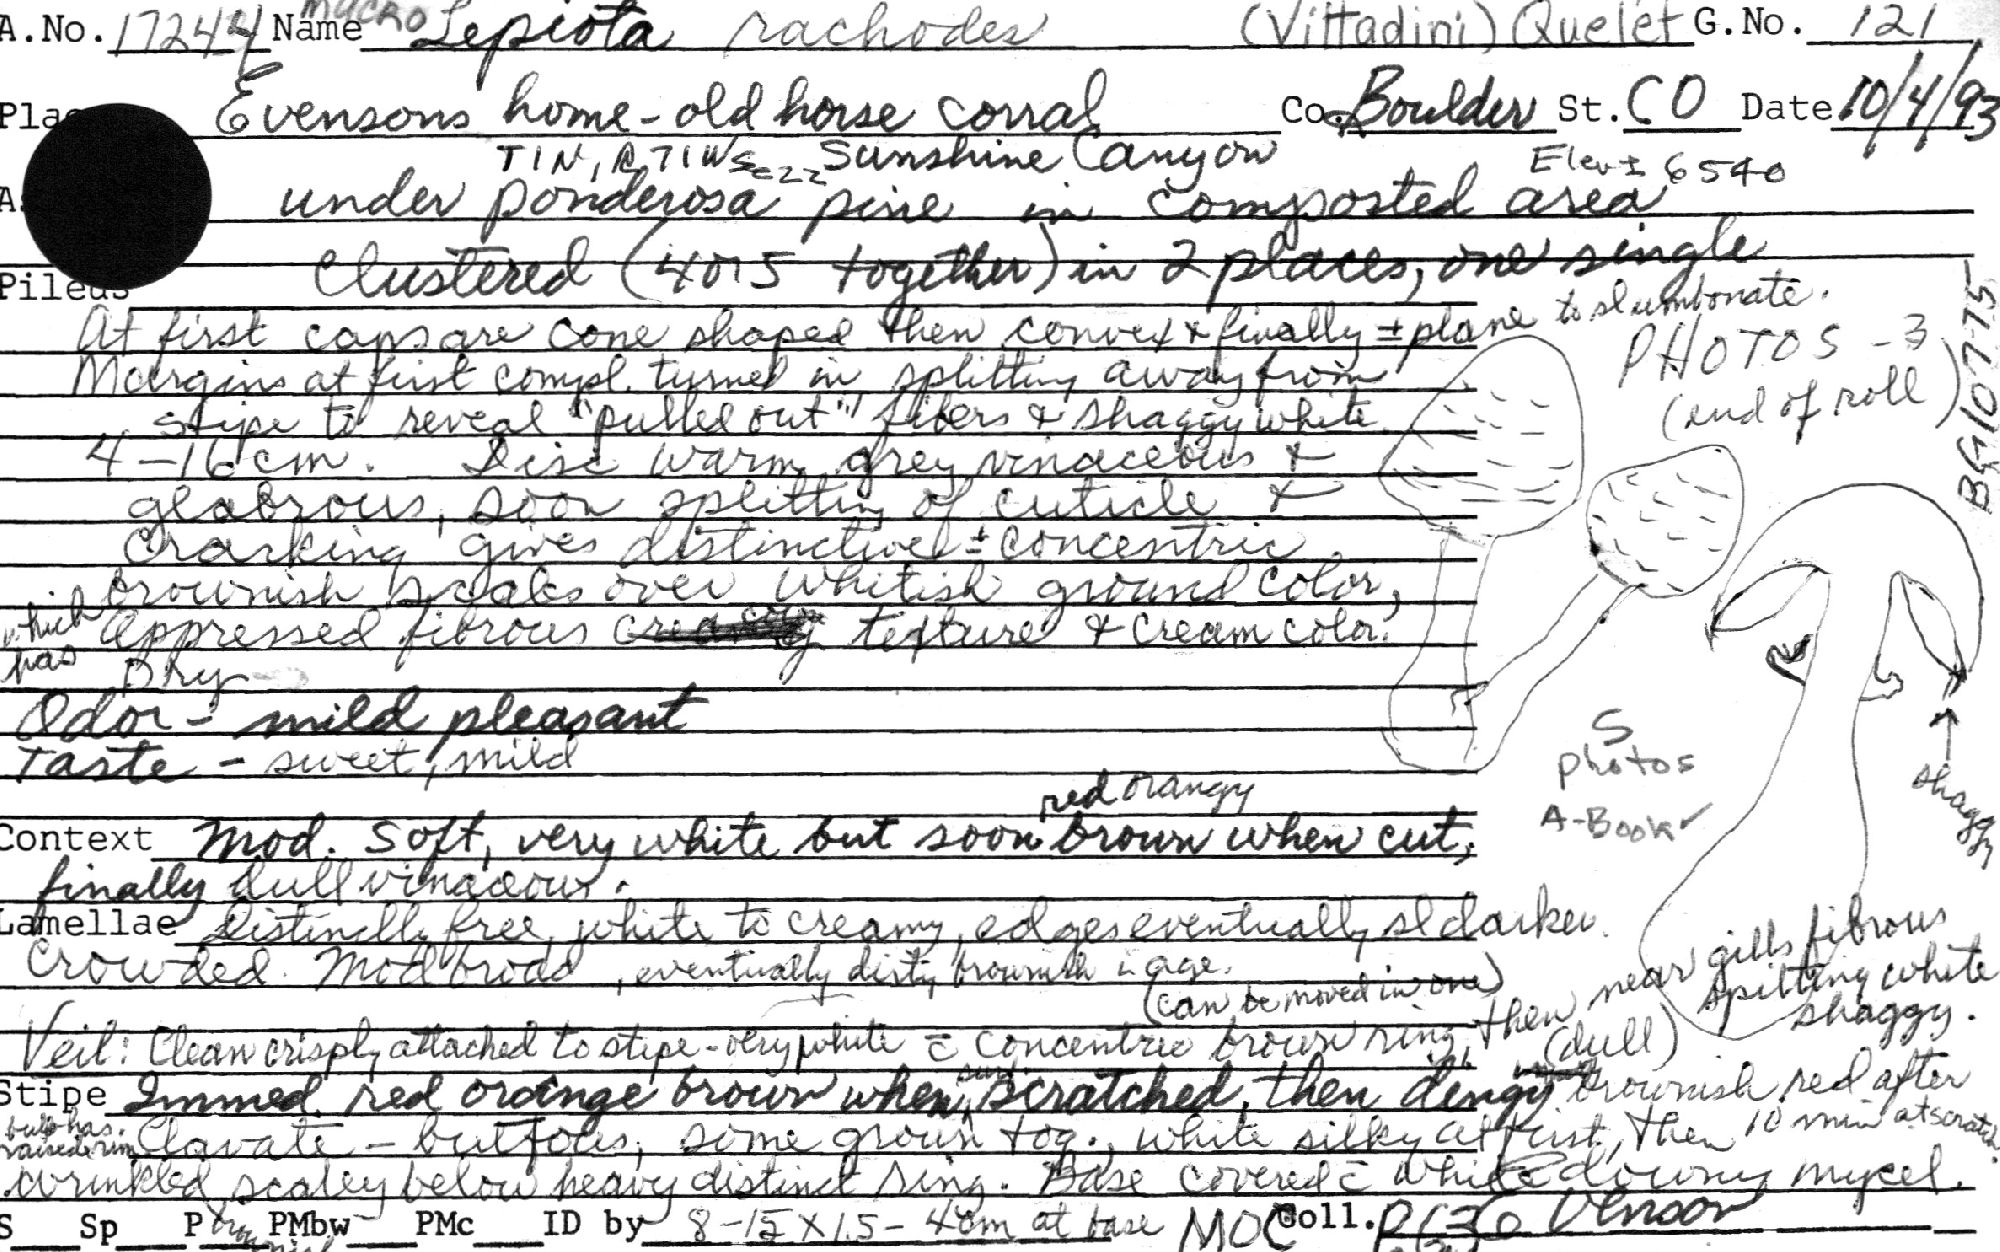 A.No. 17244 Name MACRO Lepiota rachodes (Vittadini) Quelet G.No. 121
Evensons home - old horse corral Co. Boulder St. CO Date 10/4/93
T1N, R71W Sec 22 Sunshine Canyon Elev ± 6540
under ponderosa pine in composted area
Clustered (4 or 5 together) in 2 places, one single
Pileus
At first caps are cone shaped then convex & finally ± plane to sl umbonate.
Margins at first compl. turned in splitting away from
stipe to reveal "pulled out" fibers & shaggy white.
4-16 cm. Disc warm grey vinaceous &
glabrous, soon splitting of cuticle &
cracking gives distinctive ± concentric
brownish scales over whitish ground color,
which has appressed fibrous texture & cream color.
Dry
PHOTOS - 3
(end of roll)
BG10775
Odor - mild pleasant
Taste - sweet, mild
5
photos
A-Book ✓
shaggy
red orangy
Context Mod. soft, very white but soon brown when cut,
finally dull vinaceous.
Lamellae Distinctly free, white to creamy, edges eventually sl darker.
Crowded. Mod broad, eventually dirty brownish c̄ age.
(can be moved in one)
Veil: Clean crisply attached to stipe - very white c̄ concentric brown ring then near gills fibrous
spitting white
shaggy.
Stipe Immed. red orange brown when surf. scratched, then dingy (dull) brownish red after
10 min at scratch.
bulb has raised rim
Clavate - bulbous, some grown tog., white silky at first, then
wrinkled, scaley below heavy distinct ring. Base covered c̄ white downy mycel.
S Sp P PMbw PMc ID by 8-15 X 1.5-4cm at base MOC Coll. Evenson